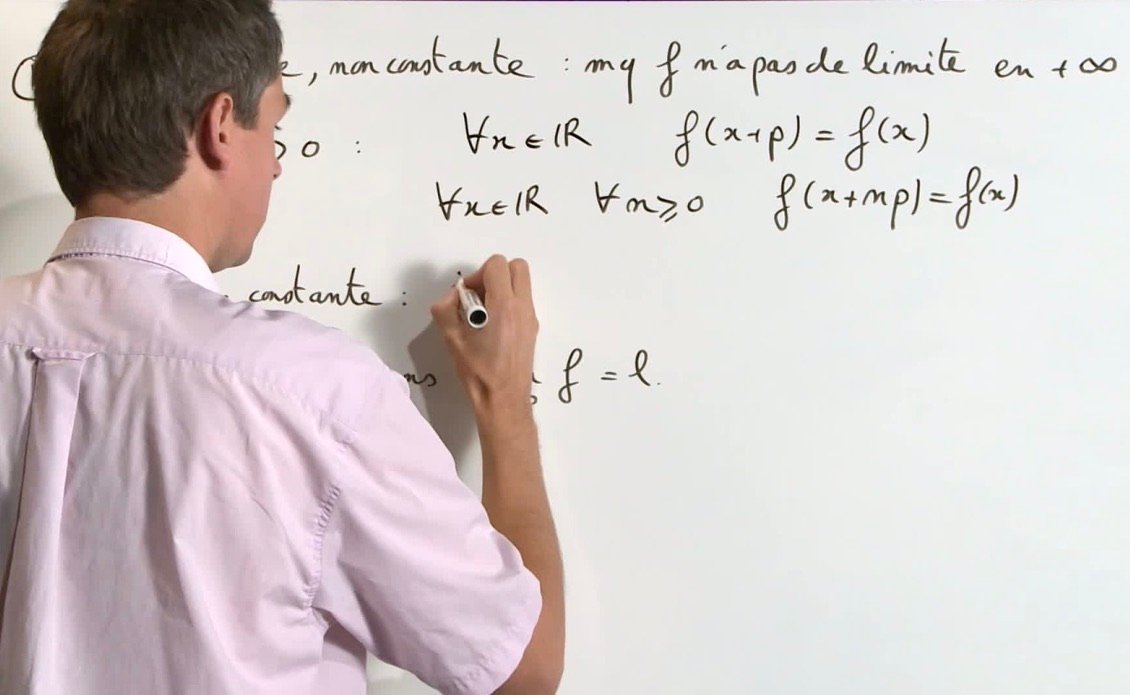 , non constante : mq f n'a pas de limite en +∞
> 0 : ∀x ∈ ℝ f(x+p) = f(x)
∀x ∈ ℝ ∀n ⩾ 0 f(x+np) = f(x)
constante :
f = l.